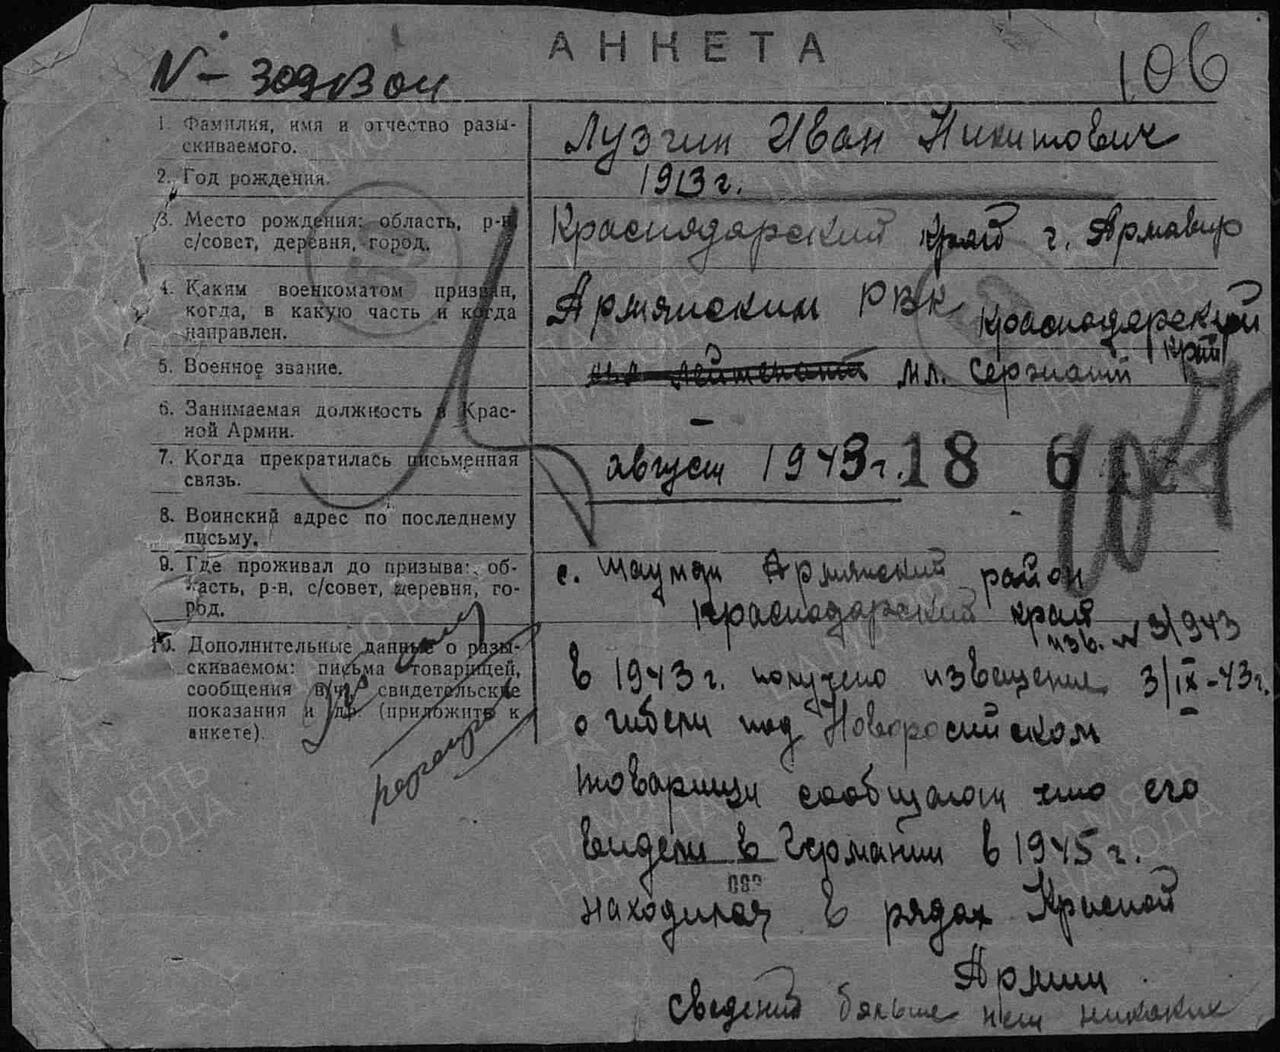 АНКЕТА
106
1. Фамилия, имя и отчество разы-
скиваемого.
Лузгин Иван Никитович
2. Год рождения.
1913 г.
3. Место рождения: область, р-н,
с/совет, деревня, город.
Краснодарский край г. Армавир
4. Каким военкоматом призван,
когда, в какую часть и когда
направлен.
Армянским РВК Краснодарский
край
5. Военное звание.
мл. сержант
6. Занимаемая должность в Крас-
ной Армии.
–
7. Когда прекратилась письменная
связь.
август 1943 г.
18 6
8. Воинский адрес по последнему
письму.
-
9. Где проживал до призыва: об-
ласть, р-н, с/совет, деревня, го-
род.
с. Шаумян Армянский район
Краснодарский край
10. Дополнительные данные о разы-
скиваемом: письма товарищей,
сообщения в/ч, свидетельские
показания и др. (приложить к
анкете).
изв. № 3/943
в 1943 г. получено извещение 3/IX-43 г.
о гибели под Новоросийском
товарищи сообщают что его
видели в Германии в 1945 г.
находился в рядах Красной
Армии
сведений больше нет никаких
ПАМЯТЬ
НАРОДА